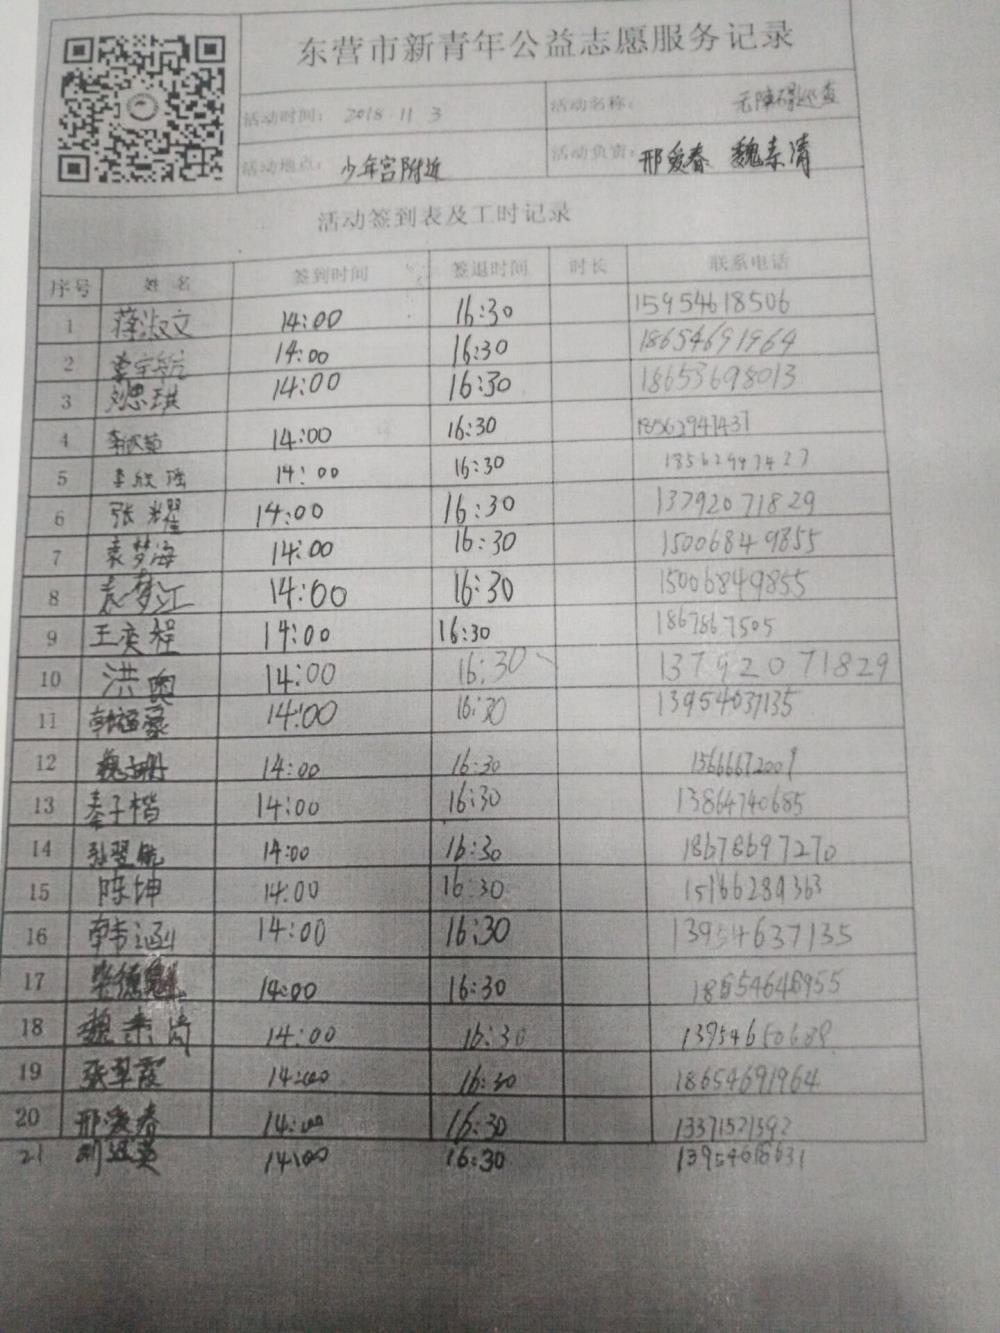 东营市新青年公益志愿服务记录
活动时间： 2018 11 3 活动名称： 无障碍巡查
活动地点： 少年宫附近 活动负责： 邢爱春 魏素清
活动签到表及工时记录
序号 姓名 签到时间 签退时间 时长 联系电话
1 蒋淑文 14:00 16:30 15954618506
2 14:00 16:30 18654691964
3 刘思琪 14:00 16:30 18653698013
4 14:00 16:30
5 李欣瑶 14:00 16:30
6 张耀 14:00 16:30 13792071829
7 袁梦海 14:00 16:30 15006849855
8 袁梦江 14:00 16:30 15006849855
9 王奕程 14:00 16:30 1867867505
10 洪奥 14:00 16:30 13792071829
11 14:00 16:30
12 14:00 16:30
13 秦子楷 14:00 16:30 13864740685
14 14:00 16:30 18678697270
15 陈坤 14:00 16:30
16 韩涵 14:00 16:30 13954637135
17 14:00 16:30
18 魏素清 14:00 16:30
19 张翠霞 14:00 16:30 18654691964
20 邢爱春 14:00 16:30 13371521592
21 14:00 16:30